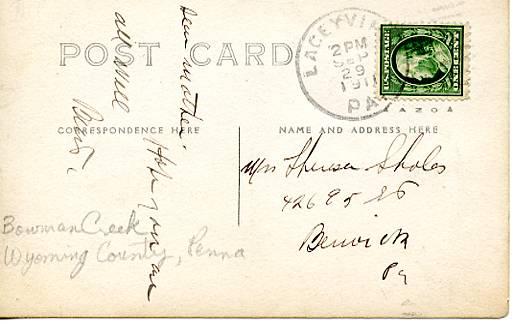 POST CARD
LACEYVI
2 PM
SEP
29
1911
PA
U.S. POSTAGE
ONE CENT
AZOA
CORRESPONDENCE HERE
NAME AND ADDRESS HERE
Dear Mother
Hope you are
all well
Mrs Theresa Sholes
426 9 5 St
Berwick
Pa
Bowman Creek
Wyoming County, Penna